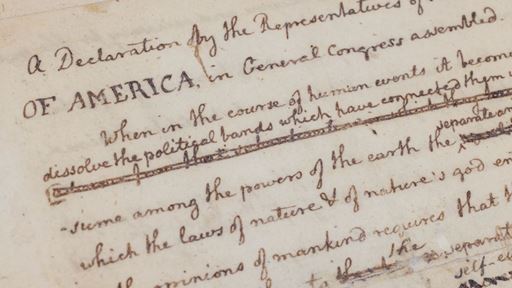 A Declaration by the Representatives of
OF AMERICA, in General Congress assembled.
When in the course of human events it become
dissolve the political bands which have connected them
separate an
-sume among the powers of the earth the
which the laws of nature & of nature's god en
opinions of mankind requires that th
the separat
self-ev